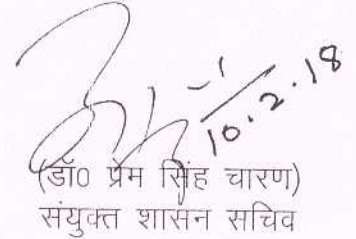 10.2.18
(डॉ0 प्रेम सिंह चारण)
संयुक्त शासन सचिव